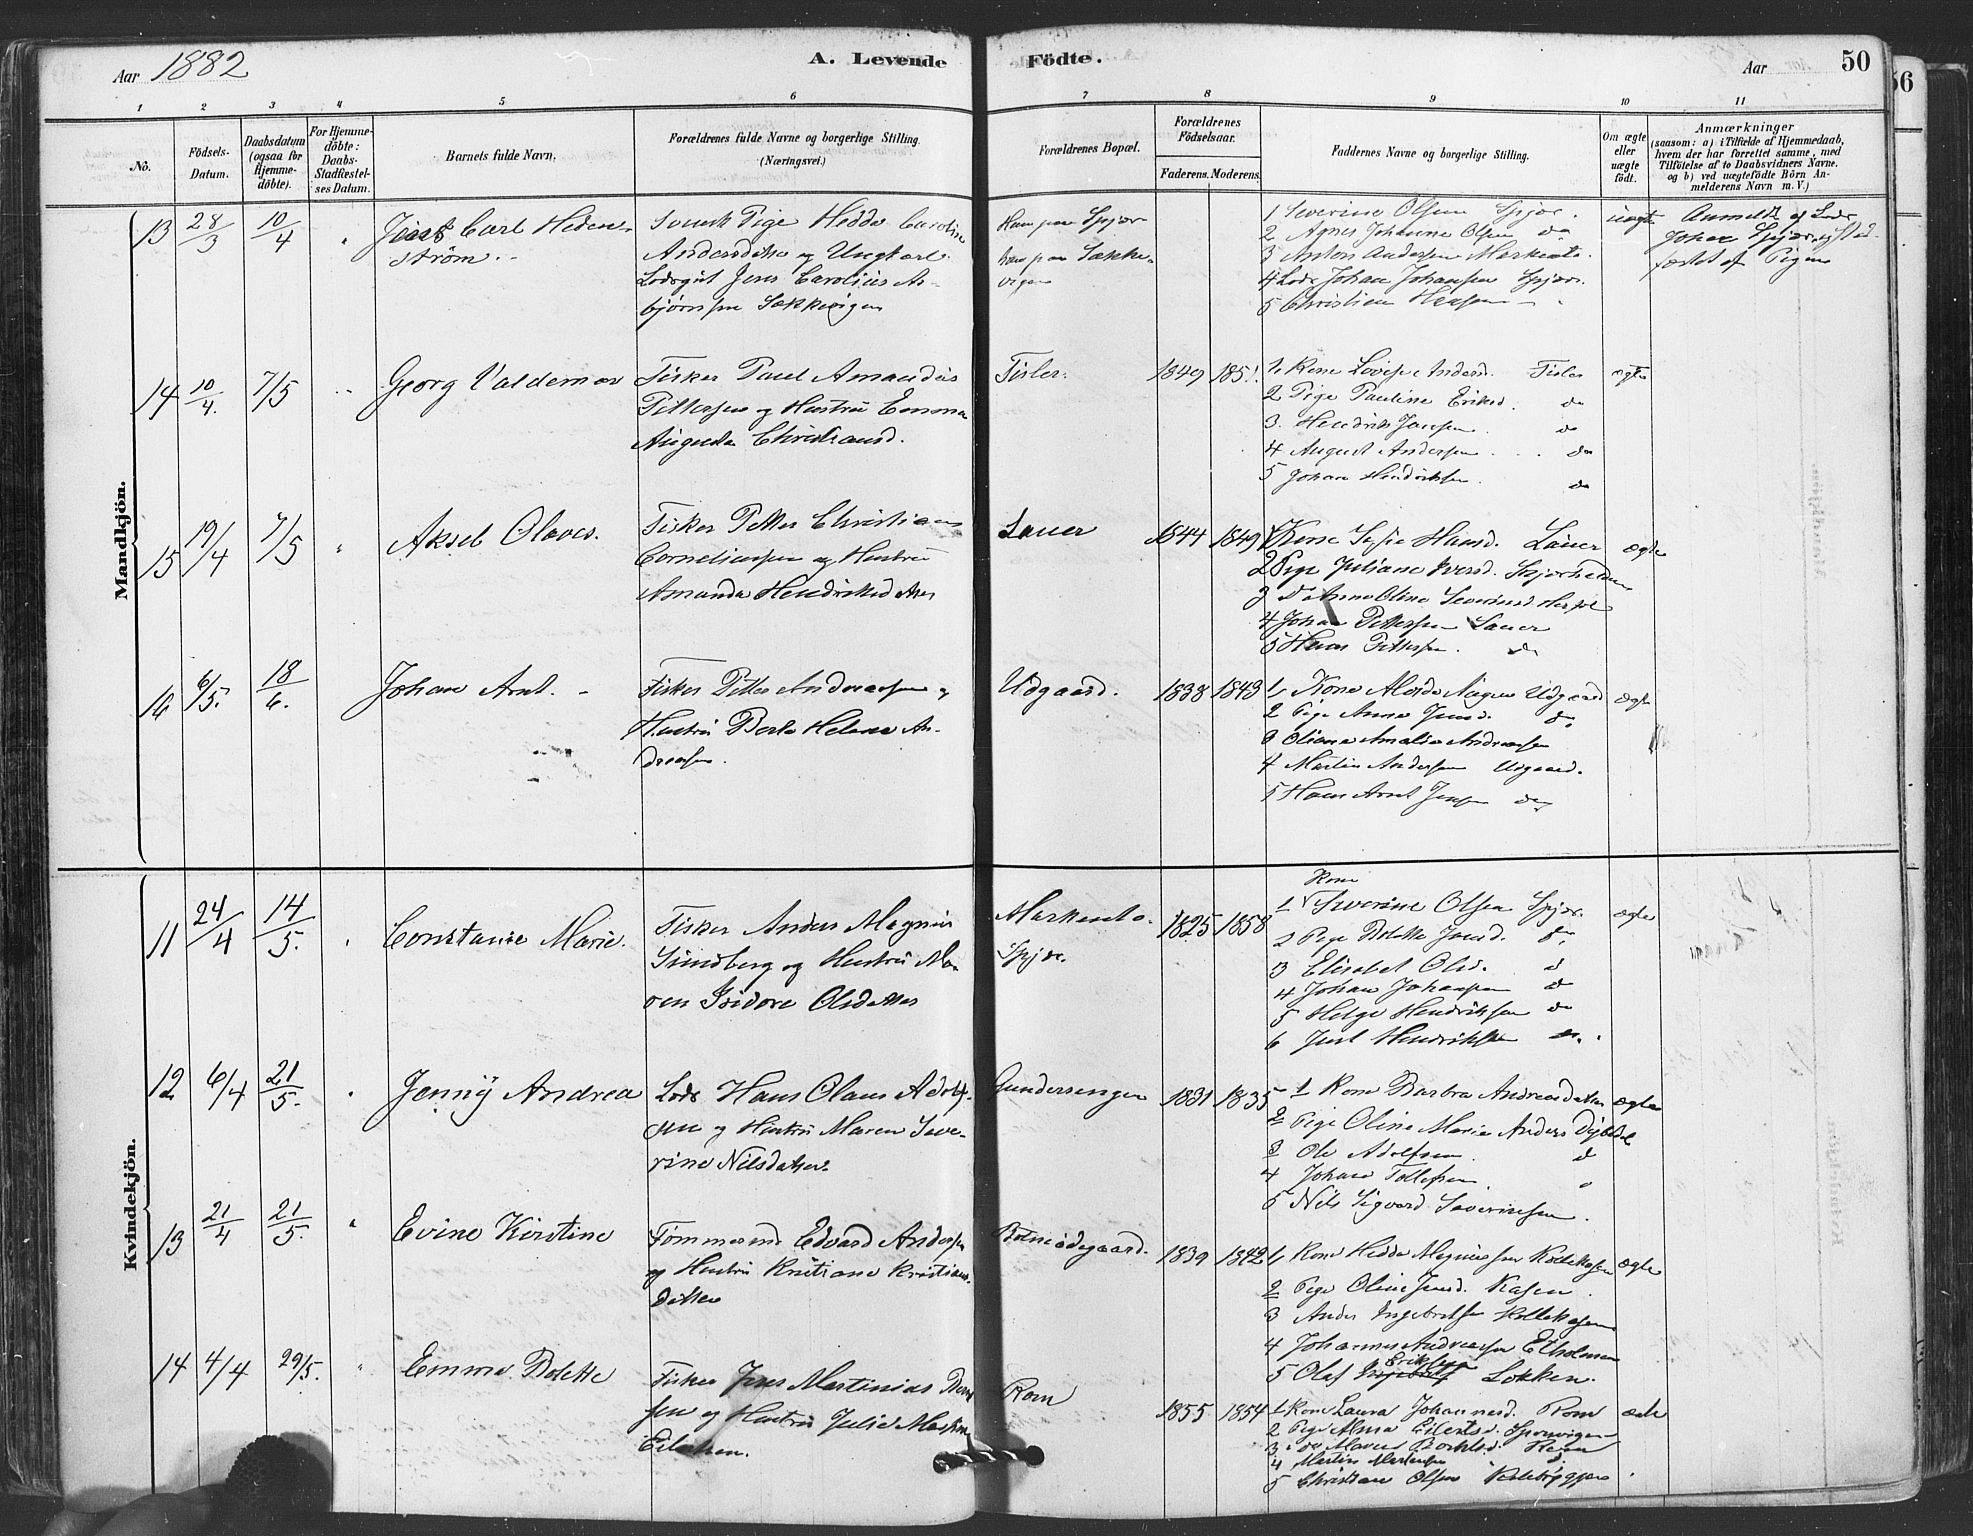 Aar 1882
A. Levende Födte.
Aar
50
56
1 2 3 4 5 6 7 8 9 10 11
No.
Födsels-
Datum.
Daabsdatum
(ogsaa for
Hjemme-
döbte).
For Hjemme-
döbte:
Daabs-
Stadfæstel-
ses Datum.
Barnets fulde Navn.
Forældrenes fulde Navne og borgerlige Stilling.
(Næringsvei.)
Forældrenes Bopæl.
Forældrenes
Födselsaar.
Faderens. Moderens.
Faddernes Navne og borgerlige Stilling.
Om ægte
eller
uægte
födt.
Anmærkninger
(saasom: a) i Tilfælde af Hjemmedaab,
hvem der har forrettet samme, med
Tilföielse af to Daabsvidners Navne.
og b) ved uægtefödte Börn An-
melderens Navn m. V.)
Mandkjön.
13 28/3 10/4 " Carl Heden-
ström.
Svensk Pige Hedda Caroline
Andersdatter og Ungkarl
Lodsgut Jens Carolius As-
bjørnsen Søkkevigen
Hun paa Spjær
han paa Søkke-
vigen
1 Severine Olsen Spjær.
2 Agnes Johanne Olsen do
3 Anton Andersen
4 Lods Johan Johansen Spjær.
5 Christian Hansen
uægte
Anmeldt af Lods
Johan Spjær,
af Pigen
14 10/4. 7/5 " Georg Valdemar
Fisker Paul Amandus
Pettersen og Hustru Emma
Augusta Christiansd.
Tisler.
1849 1851.
1, Kone Lovise Andersd. Tisler
2 Pige Pauline Eriksd. do
3. Hendrik Jansen. do
4 August Andersen do
5 Johan Hendriksen. do
ægte
15 19/4 7/5 " Aksel Olaves.
Fisker Petter Christian
Corneliussen og Hustru
Amanda Hendriksdatter
Lauer
1844 1849
1 Kone Hansd. Lauer
2 Pige Juliane Iversd.
3 do Anne Oline Severinsd
4 Johan Pettersen Lauer
5 Hans Pettersen. do
ægte
16 6/5. 18/6. Johan Arnt.
Fisker Petter Andreassen og
Hustru Berte Helene An-
dreasen.
Udgaard.
1838 1843
1, Kone Udgaard
2 Pige Anna Jensd. do
3 Oliane Amalie Andreasen
4 Martin Andersen Udgaard.
5 Hans Arnt Jensen do
ægte
Kvindekjön.
11 24/4 14/5. Constanse Marie.
Fisker Anders Magnus
Sundberg og Hustru Ma-
ren Isidore Olsdatter
Spjær.
1825 1858
Kone
1 Severine Olsen Spjær.
2 Pige Bolette Jensd. do
3 Elisabet Olsd. d
4 Johan Johansen do
5 Helge Hendriksen do
6 Juel Hendriksen do.
ægte
12 6/4 21/5. Jenny Andrea
Lods Hans Olaus Adolf-
sen og Hustru Maren Seve-
rine Nilsdatter.
Gundersengen
1831 1835
1 Kone Barbra Andreasdatter
2 Pige Oline Marie Anders
3 Ole Adolfsen. d
4 Johan Tollefsen.
5 Nils Sigvard Severinsen.
ægte
13 21/4 21/5. " Evine Kirstine
Tømmermd Edvard Andersen
og Hustru Kristiane Kristians-
datter
Botneødegaard.
1839 1842
1, Kone Hedda Magnussen
2 Pige Oline Jensd. Kasen.
3 Anders Ingebretsen
4 Johannes Andreassen Etholmen
Eriksen
5 Olaf Løkken.
ægte
14 4/4 29/5. " Emma Bolette
Fisker Jens Martinius
sen og Hustru Julie
Eilertsen.
Rom
1855 1854
1 Kone Laura Johannesd. Rom
2 Pige Alma Eilertsd.
3 do Maren
4 Martin Martinsen
5 Christian Olsen
ægte